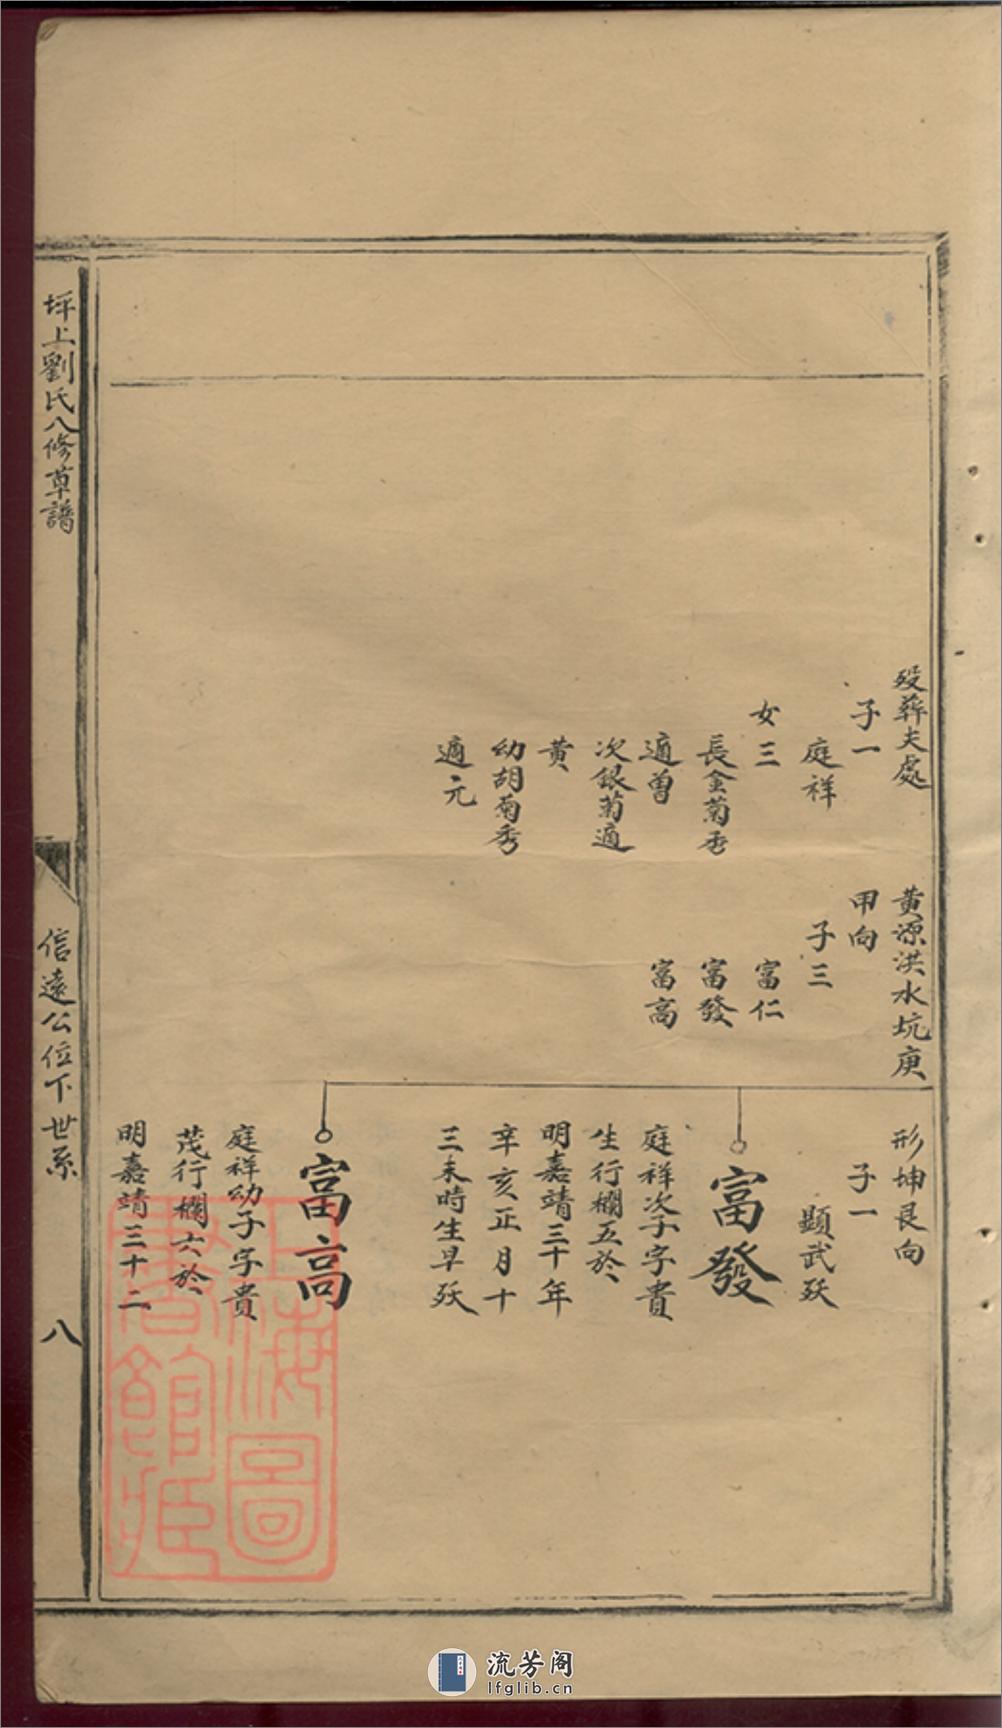 歿葬夫處
子一
庭祥
女三
長金菊秀
適曾
次銀菊適
黄
幼胡菊秀
適元
黄源洪水坑庚
甲向
子三
富仁
富發
富高
形坤艮向
子一
顯武殀
富發
庭祥次子字貴
生行欄五於
明嘉靖三十年
辛亥正月十
三未時生早殀
富高
庭祥幼子字貴
茂行欄六於
明嘉靖三十二
坪上劉氏八修草譜
信遠公位下世系
八
上海圖
書館藏
流芳阁
lfglib.cn